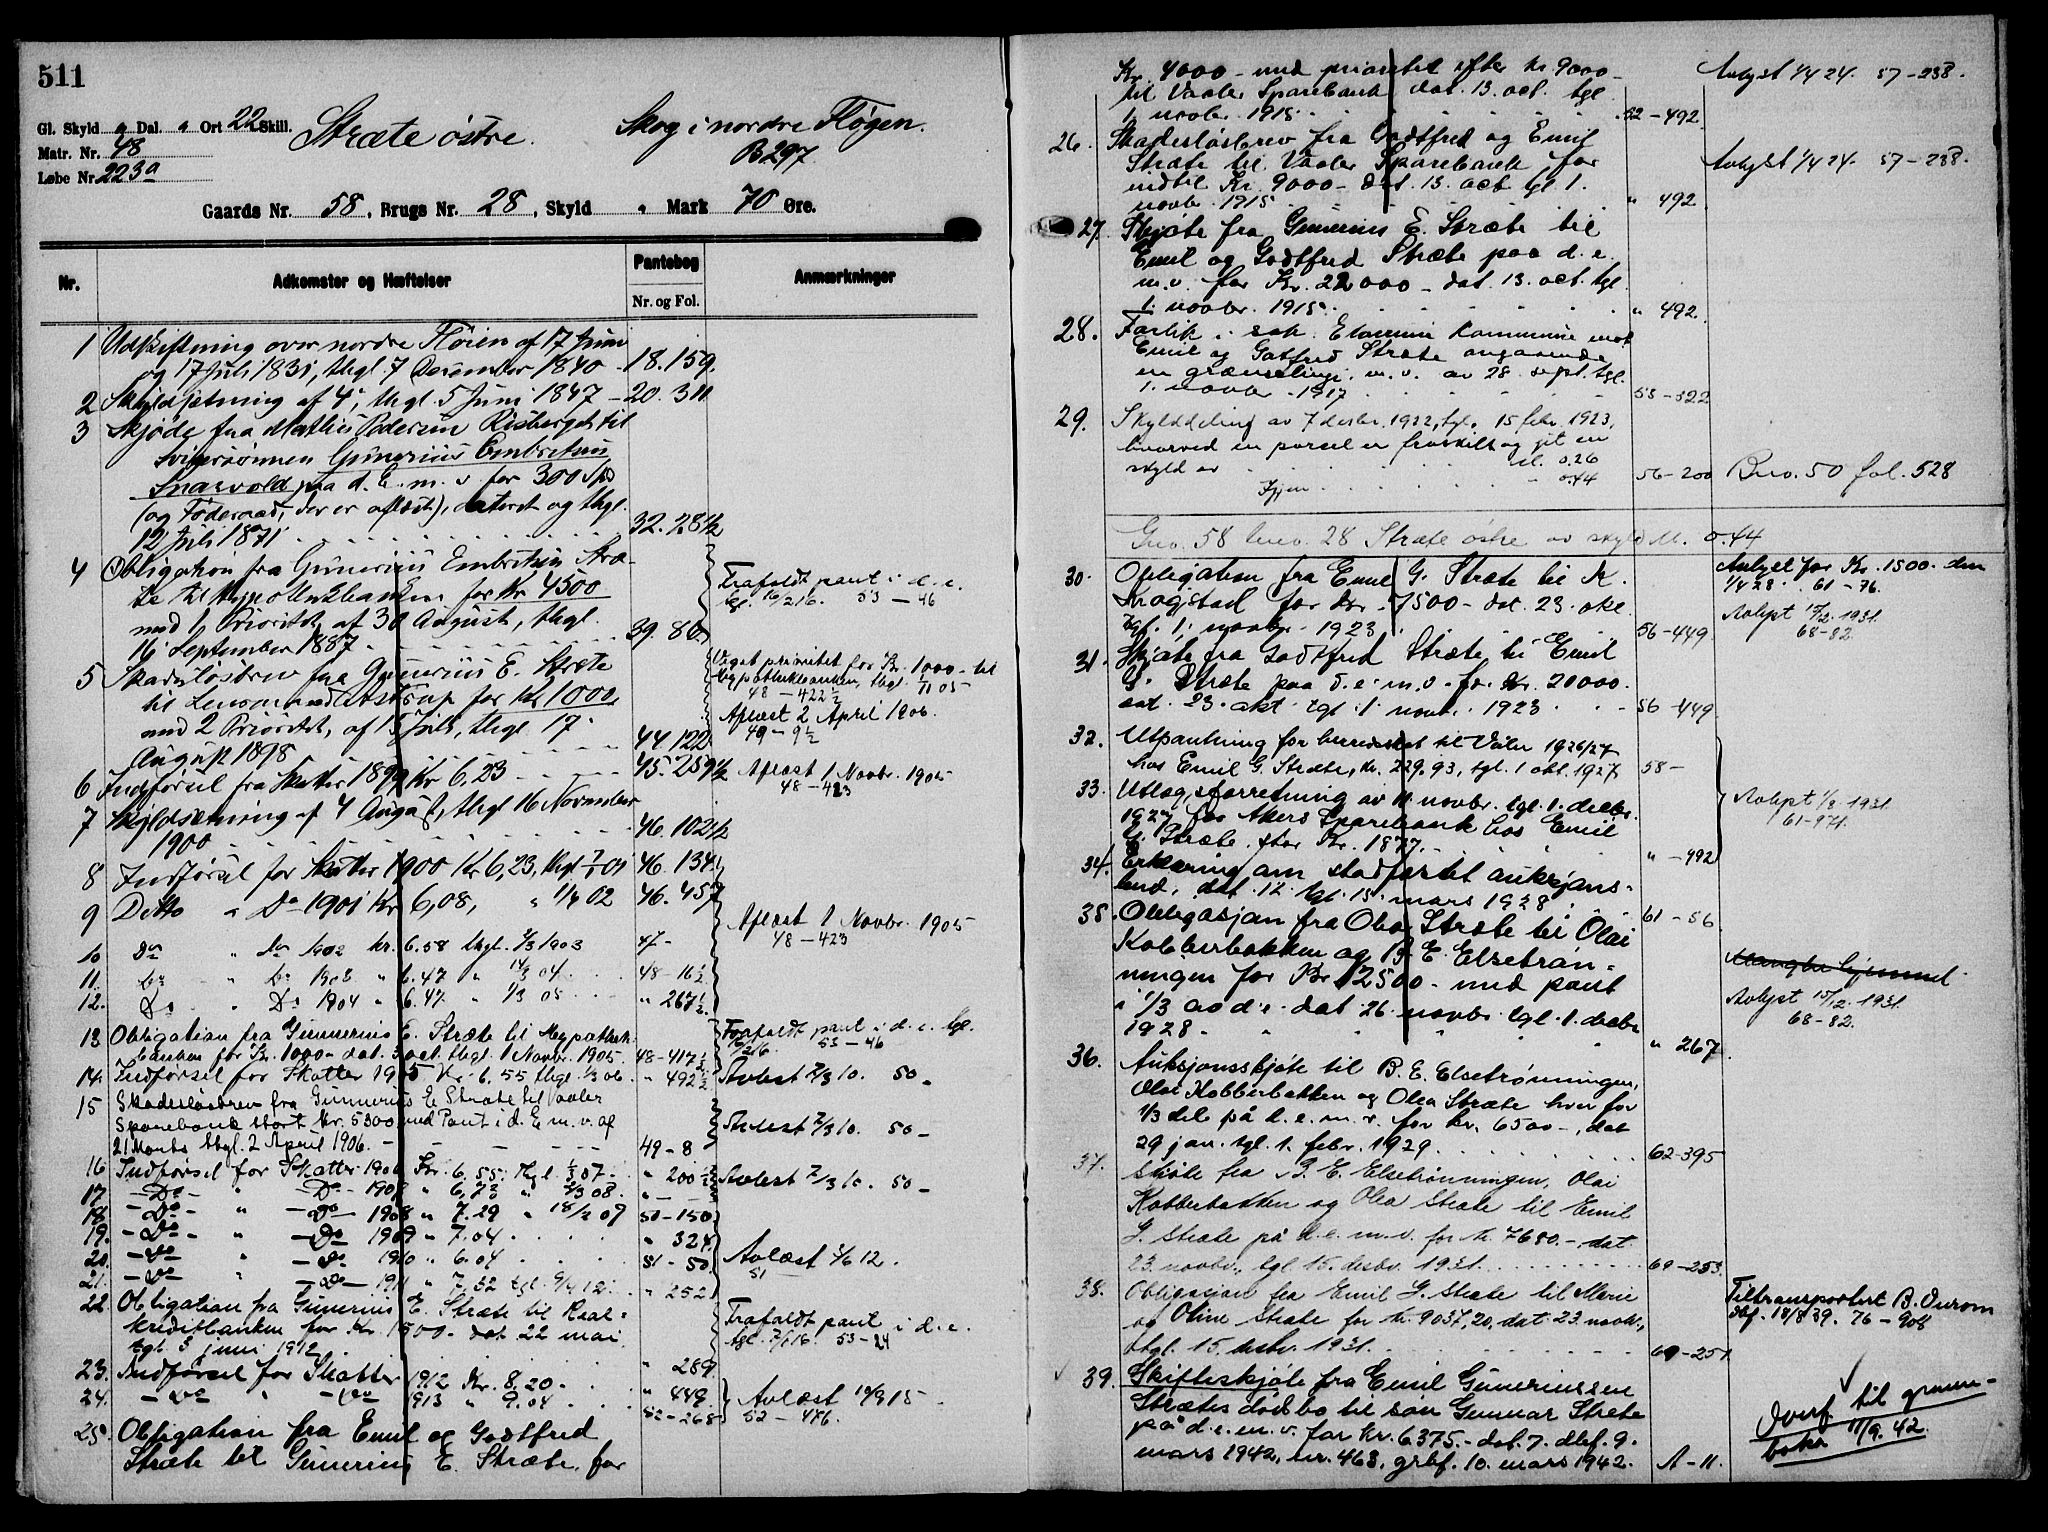 511
Gl. Skyld " Dal. " Ort 22 Skill.
Matr. Nr. 48
Løbe Nr. 223a
Stræte østre.
Skog i nordre Fløgen.
B297
Gaards Nr. 58, Brugs Nr. 28, Skyld " Mark 70 Øre.
Nr.
Adkomster og Hæftelser
Pantebog
Nr. og Fol.
Anmærkninger
1 Udskiftning over nordre Fløien af 17 Juni
og 17 Juli 1831, thgl. 7 December 1840 - 18. 159.
2 Skyldsætning af 4, thgl. 5 Juni 1847 - 20. 311
3 Skjøde fra Mathis Pedersen Risberget til
Svigersønnen Gunerius Embretsen
Snarvold paa d. E. m. v. for 300 Spd
(og Føderaad, der er aflæst), dateret og thgl.
12 Juli 1871 32. 281½
4 Obligation fra Gunerius Embretsen Stræ-
te til Hypothekbanken for Kr 4500
med 1 Prioritet af 30 August, thgl.
16 September 1887. 39. 86
Frafaldt pant i d. e.
tgl. 16/2 16. 53 - 46
5 Skadesløsbrev fra Gunerius E. Stræte
til Lensmand Abstrup for Kr 1000
med 2 Prioritet, af 15 Juli, thgl 17
August 1898 44. 122
Veget prioritet for Kr. 1000 - til
Hypothekbanken, thgl. 1/11 05
48 - 422½
Aflæst 2 April 1906.
49 - 9½
6 Indførsel fra Skatter 1899 Kr 6,23 45. 259½
Aflæst 1 Novbr. 1905
48 - 423
7 Skyldsætning af 4 August, thgl 16 November
1900 46. 102½
8 Indførsel for Skatter 1900 Kr 6,23, thgl 7/1 01 46. 134
9 Ditto " Do 1901 Kr 6,08, " 1/4 02 46. 457
Aflæst 1 Novbr. 1905
48 - 423
10 Do " Do 1902 kr. 6.58 thgl. 2/3 1903 47 -
11. Do " Do 1903 " 6.47 " 14/3 04. 48 - 16½
12. Do " Do 1904 " 6.47 " 1/3 05 " 267½
13 Obligation fra Gunnerius E. Stræte til Hypothek-
banken for Kr. 1000 - dat. 3 oct. thgl. 1 Novbr. 1905. 48 - 417½
Frafaldt pant i d. e. tgl.
16/2 16. 53 - 46
14. Indførsel for Skatter 1905 Kr. 6.55 thgl. 1/3 06. " 492½
Avlest 2/3 10. 50 -
15 Skadesløsbrev fra Gunnerius E. Stræte til Vaaler
Sparebank stort kr. 5300 med Pant i d. E. m. v. af
21 Marts thgl. 2 April 1906. - 49 - 8
Avlest 2/3 10. 50 -
16 Indførsel for Skatter 1906 Kr. 6.55. thgl. 1/3 07 - " 200½
Avlest 2/3 10. 50 -
17 - Do - " - Do - 1907 " 6,73 " 2/3 08. " -
18. - Do - " - Do - 1908 " 7.29 " 18/2 09 50 - 150
19. - Do - " - Do 1909 " 7.04 " 324
20. - Do - - Do 1910 " 6.04 51 - 50
Avlæst 3/6 12.
51
21. - Do - " - Do - 1911 " 7,32 tgl. 9/4 12. " 252
22. Obligation fra Gunerius E. Stræte til Real-
kreditbanken for Kr. 1500 - dat 22 mai
tgl. 3 juni 1912 " 289
Frafaldt pant i d. e.
tgl. 2/1 16. 53 - 24
23. Indførsel for Skatter 1912 Kr. 8.20 - " 449
24. - Do " - Do 1913 " 9.04 52 - 268
Avlæst 14/9 15 -
52 - 476.
25. Obligation fra Emil og Godtfred
Stræte til Gunerius E. Stræte for
Kr. 4000 - med prioritet efter kr 9000 -
til Vaaler Sparebank dat. 13. oct. tgl.
1 novbr. 1915 52 - 492
Avlyst 1/4 24. 57 - 238.
26. Skadesløsbrev fra Godtfred og Emil
Stræte til Vaaler Sparebank for
indtil Kr. 9000 - dat. 13. oct. tgl 1.
novbr. 1915 " 492
Avlyst 1/4 24. 57 - 238.
27. Skjøte fra Gunerius E. Stræte til
Emil og Godtfred Stræte paa d. e.
m. v. for Kr. 22000 - dat. 13. oct. tgl.
1. novbr. 1915 " 492
28. Forlik i sak Elverum kommune mot
Emil og Gotfred Stræte angaaende
en grænselinje m. v. av 28. sept. tgl.
1. novbr. 1917 53 - 522
29. Skylddeling av 7 desbr. 1922, tgl. 15 febr 1923,
hvorved en parsel er fraskilt og git en
skyld av M. 0.26
Igjen - 0.44 56 - 200
Bno. 50 fol. 528
Gno. 58 bno. 28 Stræte østre av skyld M. 0.44
30. Obligation fra Emil G. Stræte til K.
Krogstad for kr. 7500 - dat. 23. okt.
tgl. 1. novbr. 1923 56 - 449
Avlyst for Kr. 1500 - den
1/4 28. 61 - 76.
Avlyst 15/12. 1931.
68 - 82.
31. Skjøte fra Godtfred Stræte til Emil
G. Stræte paa d. e. m. v. for kr. 20000.
dat. 23. okt. tgl. 1. novbr. 1923 56 - 449
32. Utpantning for herredsskat til Våler 1926/27
hos Emil G. Stræte, kr. 229.93, tgl. 1 okt. 1927 58 -
33. Utlægsforretning av 11. novbr. tgl. 1. decbr.
1927 for Akers Sparebank hos Emil
G. Stræte, stor Kr. 1877. " - 492
34. Erklæring om stadfæstet auksjons-
bud, dat. 12. tgl. 15. mars 1928 61 - 56
35. Obligasjon fra Olea Stræte til Olai
Kobberbakken og B. E. Elsetrøn-
ningen for Kr. 2500 - med pant
i 1/3 av d. e. dat. 26. novbr. tgl. 1. decbr.
1928 " 267
Avlyst 15/12. 1931.
68 - 82.
36. Auksjonsskjøte til B. E. Elsetrønningen,
Olai Kobberbakken og Olea Stræte hver for
1/3 del på d. e. m. v. for kr. 6500 -, dat
29 jan. tgl. 1. febr. 1929 62 - 395
37. Skjøte fra B. E. Elsetrønningen, Olai
Kobberbakken og Olea Stræte til Emil
G. Stræte på d. e. m. v. for kr. 7680 -, dat
23. novbr., tgl 15. desbr. 1931 69 - 253
38. Obligasjon fra Emil G. Stræte til Marie
og Oline Stræte for kr. 9037,20, dat 23. novbr.,
tgl. 15. desbr. 1931. 69 - 251
Tiltransportert B. Ourom
dbf. 18/8 39. 76 - 908
39. Skifteskjøte fra Emil Gunneriussen
Strætes dødsbo til søn Gunnar Stræte
på d. e. m. v. for kr. 6375. - dat. 7. dbf. 9.
mars 1942, nr. 468, grbf. 10. mars 1942. A - 11.
Overf til grunn-
boka 11/9. 42.